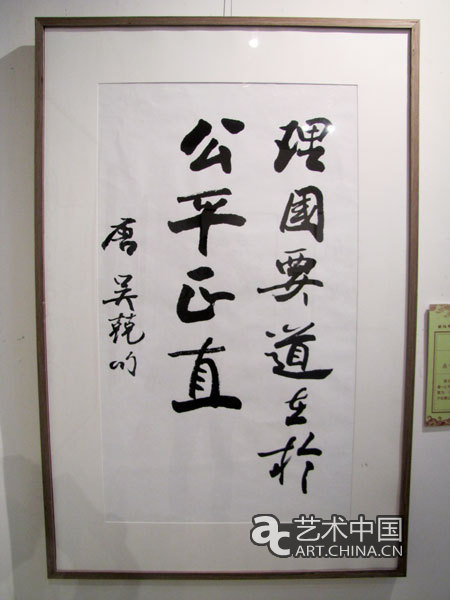 理国要道在於
公平正直
唐 吴兢句
艺术中国
ART.CHINA.CN